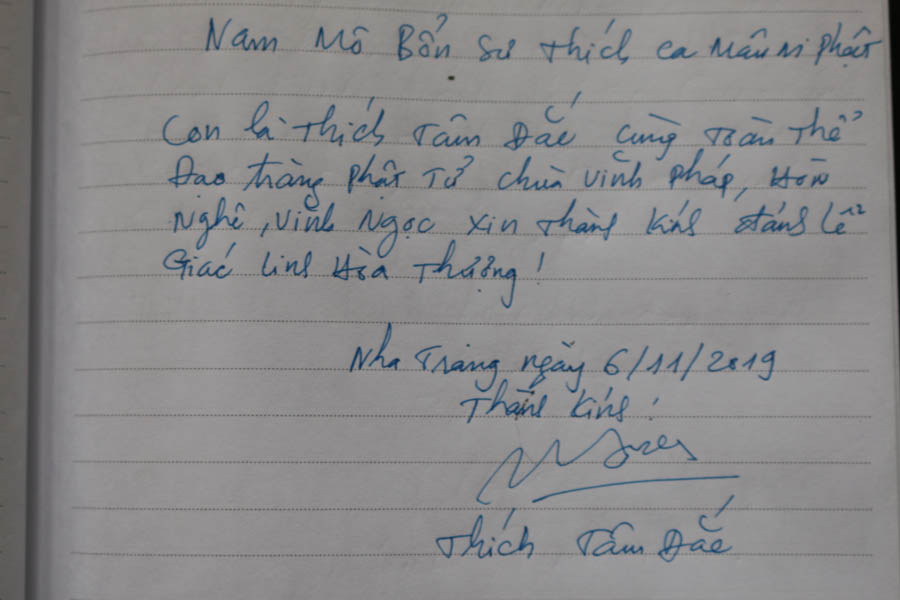 Nam Mô Bổn Sư Thích Ca Mâu Ni Phật
Con là Thích Tâm Đắc cùng toàn thể
Đạo tràng phật Tử chùa Vĩnh Pháp, Hòn
Nghê, Vĩnh Ngọc xin thành kính đảnh lễ
Giác linh Hòa Thượng!
Nha Trang ngày 6/11/2019
Thành kính!
Thích Tâm Đắc